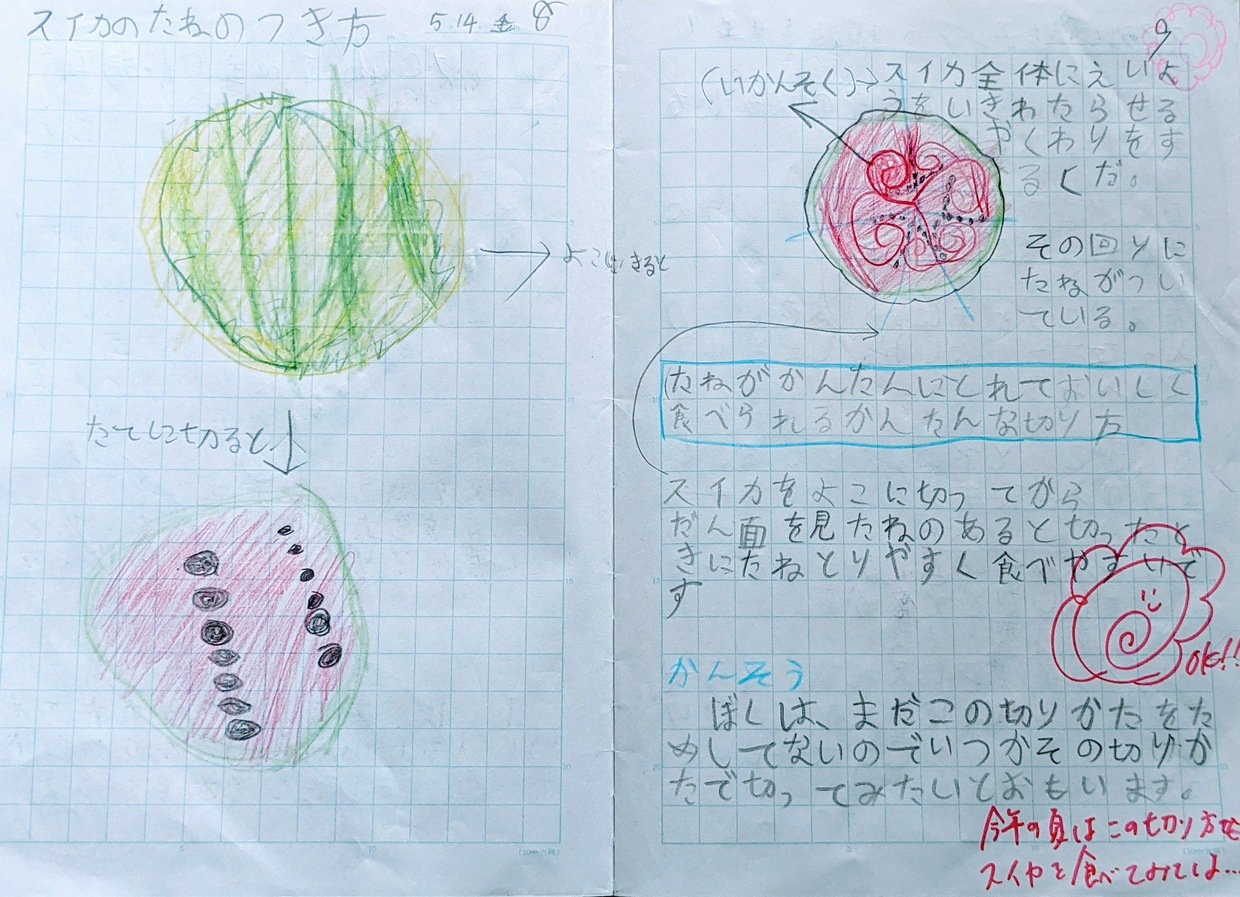 スイカのたねのつき方
5.14.金
8
よこにきると
たてに切ると
9
(いかんそく)→スイカ全体にえいよ
うをいきわたらせる
やくわりをす
るくだ。
その回りに
たねがつい
ている。
たねがかんたんにとれておいしく
食べられるかんたんな切り方
スイカをよこに切ってから
だん面を見たねのあると切ったと
きにたねとりやすく食べやすいで
す
OK!!
かんそう
ぼくは、まだこの切りかたをた
めしてないのでいつかその切りか
たで切ってみたいとおもいます。
今年の夏はこの切り方で
スイカを食べてみては…